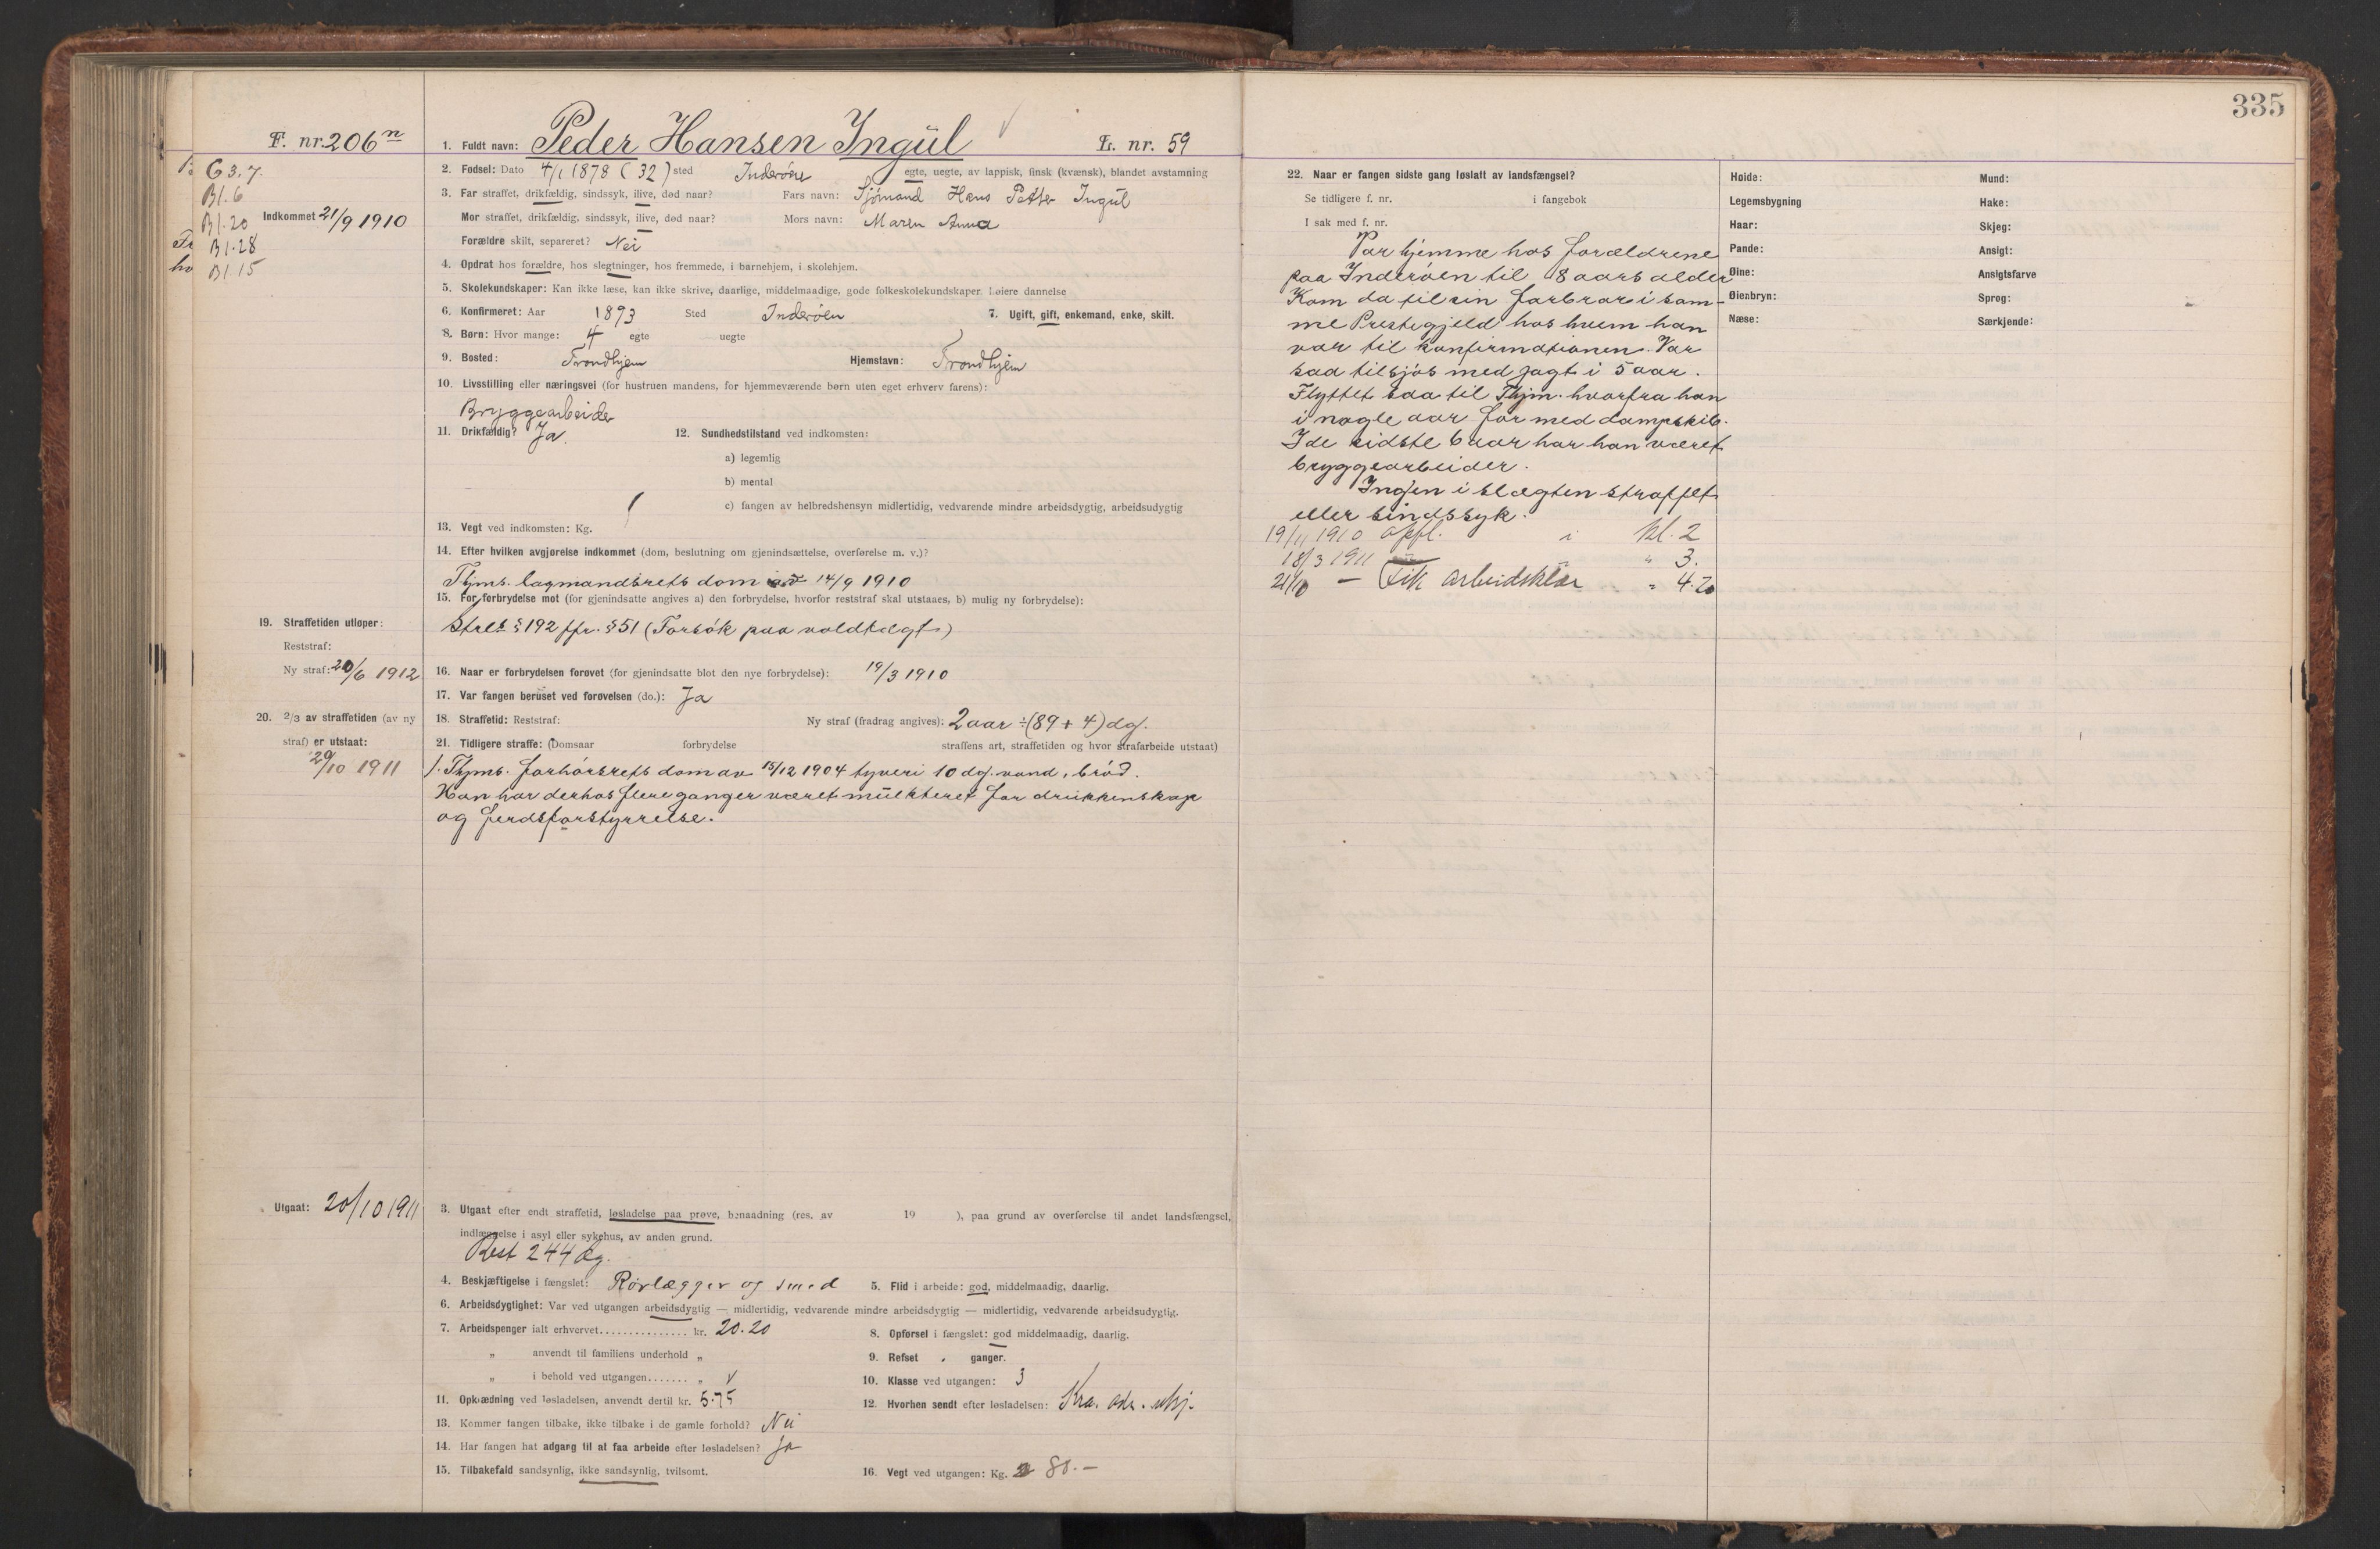 335
F. nr. 206 n
1. Fuldt navn: Peder Hansen Ingul L. nr. 59
63.7.
Bl. 6
Bl. 20
Bl. 28
Bl. 15
Indkommet 21/9 1910
2. Fødsel: Dato 4/1 1878 (32) sted Inderøen egte, uegte, av lappisk, finsk (kvænsk), blandet avstamning
3. Far straffet, drikfældig, sindssyk, ilive, død naar? Fars navn: Sjømand Hans Petter Ingul
Mor straffet, drikfældig, sindssyk, ilive, død naar? Mors navn: Maren Anna
Forældre skilt, separeret? Nei
4. Opdrat hos forældre, hos slegtninger, hos fremmede, i barnehjem, i skolehjem.
5. Skolekundskaper: Kan ikke læse, kan ikke skrive, daarlige, middelmaadige, gode folkeskolekundskaper. Høiere dannelse
6. Konfirmeret: Aar 1893 Sted Inderøen 7. Ugift, gift, enkemand, enke, skilt.
8. Børn: Hvor mange: 4 egte uegte
9. Bosted: Trondhjem Hjemstavn: Trondhjem
10. Livsstilling eller næringsvei (for hustruen mandens, for hjemmeværende børn uten eget erhverv farens):
Bryggearbeider
11. Drikfældig? Ja. 12. Sundhedstilstand ved indkomsten:
a) legemlig
b) mental
c) fangen av helbredshensyn midlertidig, vedvarende mindre arbeidsdygtig, arbeidsudygtig
13. Vegt ved indkomsten: Kg.
14. Efter hvilken avgjørelse indkommet (dom, beslutning om gjenindsættelse, overførelse m. v.)?
Thjms. lagmandsrets dom av 14/9 1910
15. For forbrydelse mot (for gjenindsatte angives a) den forbrydelse, hvorfor reststraf skal utstaaes, b) mulig ny forbrydelse):
Strl.s § 192 jfr. § 51 (Forsök paa voldtægt)
19. Straffetiden utløper:
Reststraf:
Ny straf: 20/6 1912
16. Naar er forbrydelsen forøvet (for gjenindsatte blot den nye forbrydelse): 19/3 1910
17. Var fangen beruset ved forøvelsen (do.): Ja
20. 2/3 av straffetiden (av ny straf) er utstaat:
20/10 1911
18. Straffetid: Reststraf: Ny straf (fradrag angives): 2 aar ÷ (89 + 4) dg.
21. Tidligere straffe: (Domsaar forbrydelse straffens art, straffetiden og hvor strafarbeide utstaat)
1. Thjms. forhörsrets dom av 15/12 1904 tyveri 10 dg. vand & bröd.
Han har derhos flere ganger været mulkteret for drukkenskap
og ferdsforstyrrelse.
Utgaat: 20/10 1911
3. Utgaat efter endt straffetid, løsladelse paa prøve, benaadning (res. av 19 ), paa grund av overførelse til andet landsfængsel,
indlæggelse i asyl eller sykehus, av anden grund.
Rest 244 dg.
4. Beskjæftigelse i fængslet: Rørlægger og smed 5. Flid i arbeide: god, middelmaadig, daarlig.
6. Arbeidsdygtighet: Var ved utgangen arbeidsdygtig — midlertidig, vedvarende mindre arbeidsdygtig — midlertidig, vedvarende arbeidsudygtig.
7. Arbeidspenger ialt erhvervet............... kr. 20.20 8. Opførsel i fængslet: god middelmaadig, daarlig.
„ anvendt til familiens underhold „ 9. Refset ganger.
„ i behold ved utgangen....... „ 10. Klasse ved utgangen: 3
11. Opklædning ved løsladelsen, anvendt dertil kr. 5.75 12. Hvorhen sendt efter løsladelsen: Kra.
13. Kommer fangen tilbake, ikke tilbake i de gamle forhold? Nei
14. Har fangen hat adgang til at faa arbeide efter løsladelsen? Ja
15. Tilbakefald sandsynlig, ikke sandsynlig, tvilsomt. 16. Vegt ved utgangen: Kg. 80.–
22. Naar er fangen sidste gang løslatt av landsfængsel?
Se tidligere f. nr. i fangebok
I sak med f. nr.
Var hjemme hos forældrene
paa Inderöen til 8 aars alder
Kom da til sin farbror i sam-
me Prestegjeld hos hvem han
var til konfirmationen. Var
saa tilsjös med jagt i 5 aar.
Flyttet saa til Thjm. hvorfra han
i nogle aar for med dampskib.
I de sidste 6 aar har han været
bryggearbeider.
Ingen i slægten straffet
eller sindssyk.
19/11 1910 oppfl. i kl. 2
18/3 1911 „ 3.
21/10 — Fik arbeidsklær „ 4.20
Høide:
Legemsbygning
Haar:
Pande:
Øine:
Øienbryn:
Næse:
Mund:
Hake:
Skjeg:
Ansigt:
Ansigtsfarve
Sprog:
Særkjende: